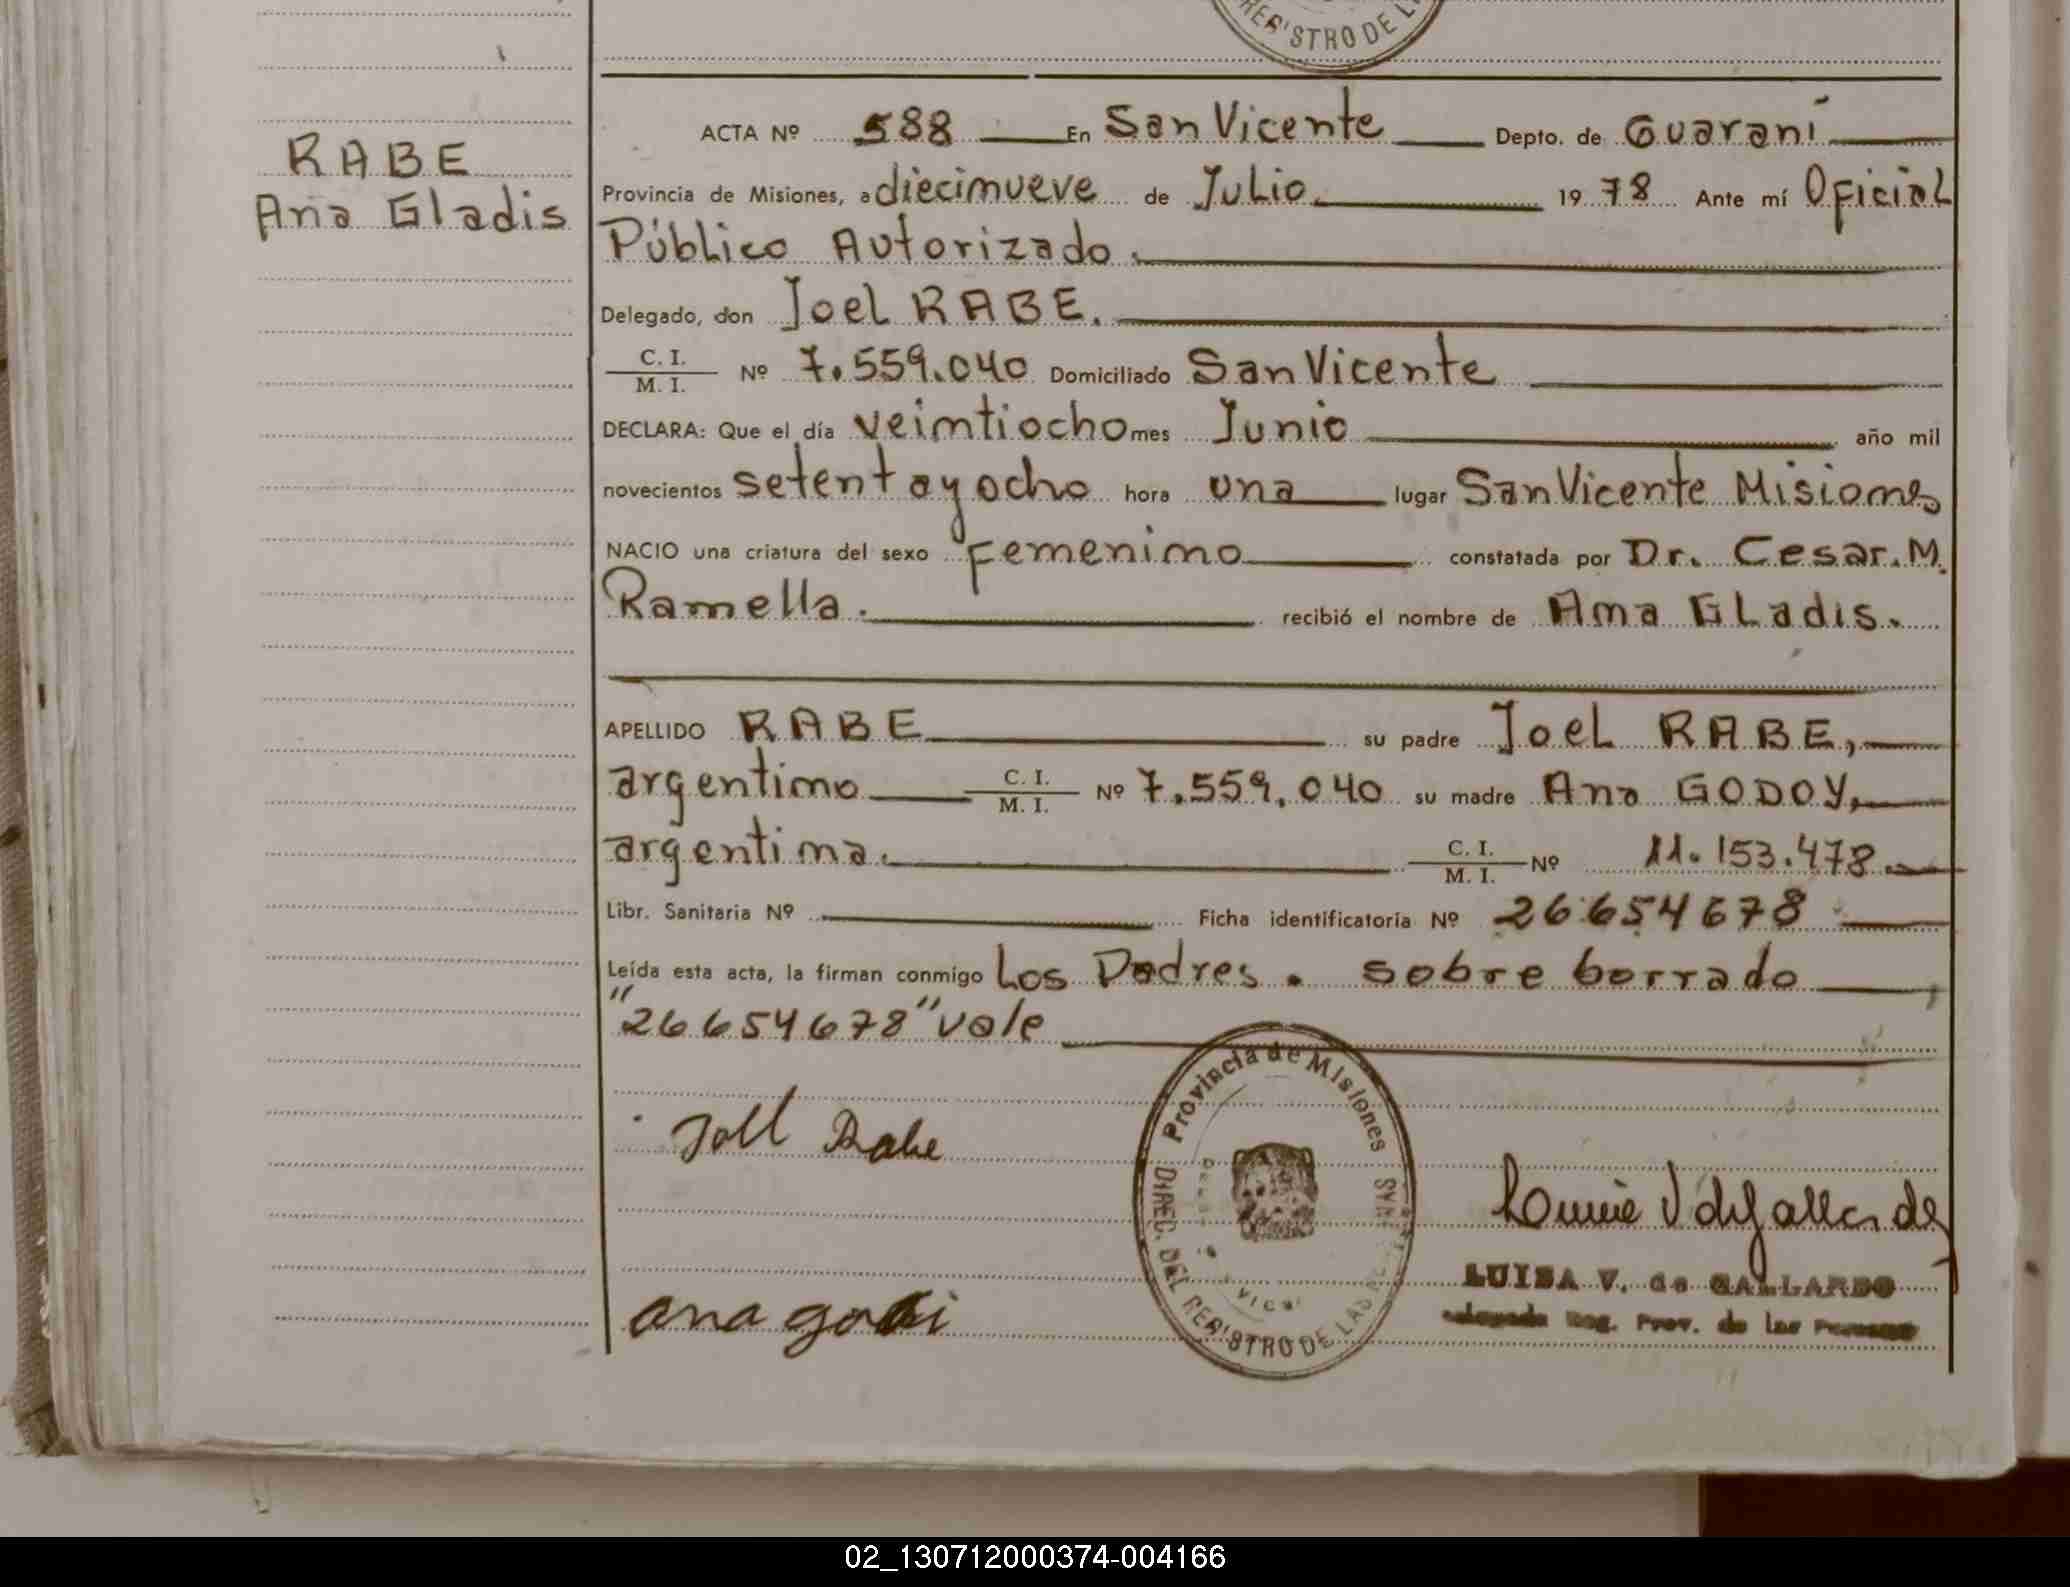 REGISTRO DE L
RABE
Ana Gladis
ACTA Nº 588 En San Vicente Depto. de Guaraní
Provincia de Misiones, a diecimueve de Julio. 1978 Ante mí Oficial
Público Autorizado.
Delegado, don Joel RABE.
C. I.
M. I. Nº 7.559.040 Domiciliado San Vicente
DECLARA: Que el día veimtiocho mes Junio año mil
novecientos setent ay ocho hora una lugar San Vicente Misiones
NACIO una criatura del sexo Femenimo constatada por Dr. Cesar. M.
Ramella. recibió el nombre de Ama GLadis.
APELLIDO RABE su padre Joel RABE,
argentimo C. I. M. I. Nº 7.559.040 su madre Ana GODOY,
argentima. C. I. M. I. Nº 11.153.478
Libr. Sanitaria Nº Ficha identificatoria Nº 26654678
Leída esta acta, la firman conmigo Los Padres. sobre borrado
"26654678" vale
Provincia de Misiones
DIREC. DEL REGISTRO DE LAS
Joel Rabe
ana godoi
LUISA V. de GALLARDO
Delegada Reg. Prov. de las Personas
02_130712000374-004166